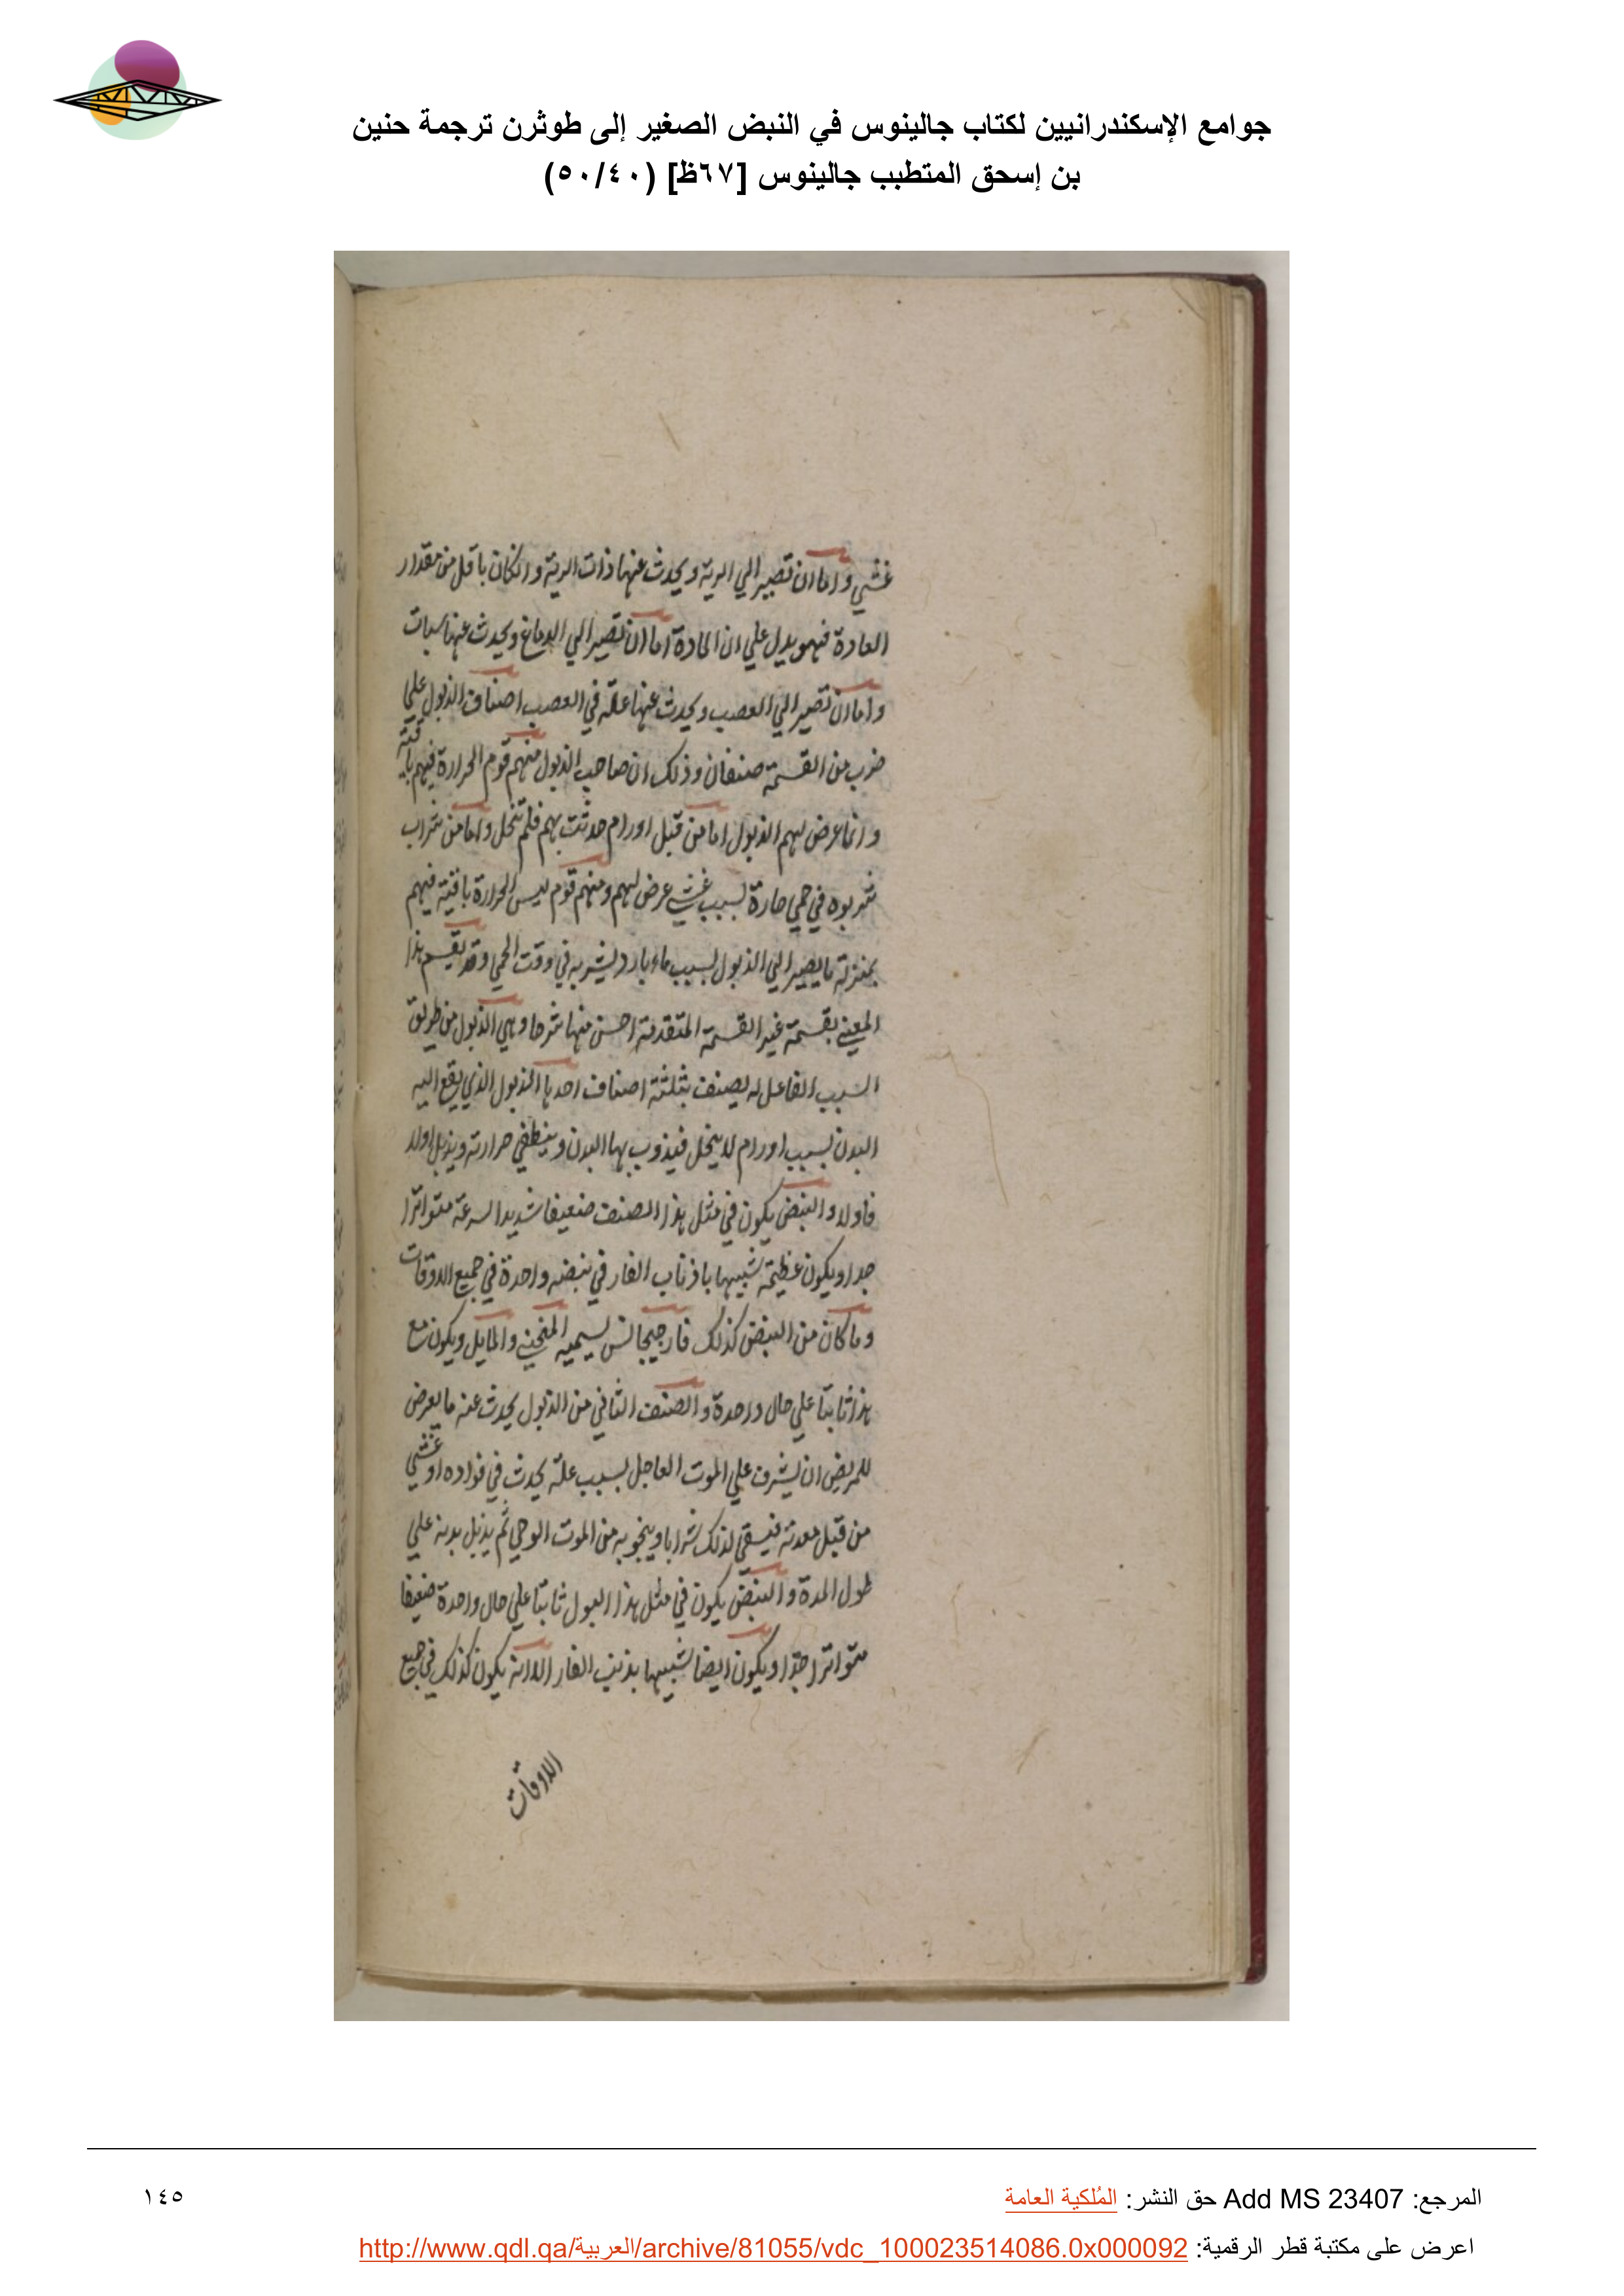 جوامع الإسكندرانيين لكتاب جالينوس في النبض الصغير إلى طوثرن ترجمة حنين
بن إسحق المتطبب جالينوس [٦٧ظ] (٥٠/٤٠)
غشي واما ان تصير الي الرية ويحدث عنها ذات الرية وانكان باقل من مقدار
العادة فهو يدل علي ان المادة اما ان تصير الي الدماغ ويحدث عنها سبات
واما ان تصير الي العصب ويحدث عنها علة في العصب اصناف الذبول علي
ضرب من القسمة صنفان وذلك ان صاحب الذبول منهم قوم الحرارة فيهم باقية
وانما عرض لهم الذبول اما من قبل اورام حدثت بهم فلم تنحل واما من شراب
شربوه في حمي حارة لسبب غشي عرض لهم ومنهم قوم ليس الحرارة باقية فيهم
بمنزلة ما يصير الي الذبول بسبب ماء بارد يشربه في وقت الحمي وقد يقسم هذا
المعني بقسمة غير القسمة المتقدمة احسن منها شرحا وهي الذبول من طريق
السبب الفاعل له يصنف بثلثة اصناف احدها الذبول الذي يقع اليه
البدن بسبب اورام لا ينحل فيذوب بها البدن وينطفي حرارته ويذبل اولا
فاولا والنبض يكون في مثل هذا الصنف ضعيفا شديد السرعة متواترا
جدا ويكون عظيمة شبيها باذناب الفار في نبضه واحدة في جميع الاوقات
وما كان من النبض كذلك فارجيجانس يسميه المنحني والمايل ويكون مع
هذا ثابتا علي حال واحدة والصنف الثاني من الذبول يحدث عنه ما يعرض
للمريض ان يشرف علي الموت العاجل بسبب علة يحدث في فواده او غشي
من قبل معدته فيسقي لذلك شرابا وينجو به من الموت الوحي ثم يذبل بدنه علي
طول المدة والنبض يكون في مثل هذا البول ثابتا علي حال واحدة ضعيفا
متواترا جدا ويكون ايضا شبيها بذنب الفار الا انه يكون كذلك في جميع
الاوقات
المرجع: Add MS 23407 حق النشر: المُلكية العامة
١٤٥
اعرض على مكتبة قطر الرقمية: http://www.qdl.qa/العربية/archive/81055/vdc_100023514086.0x000092